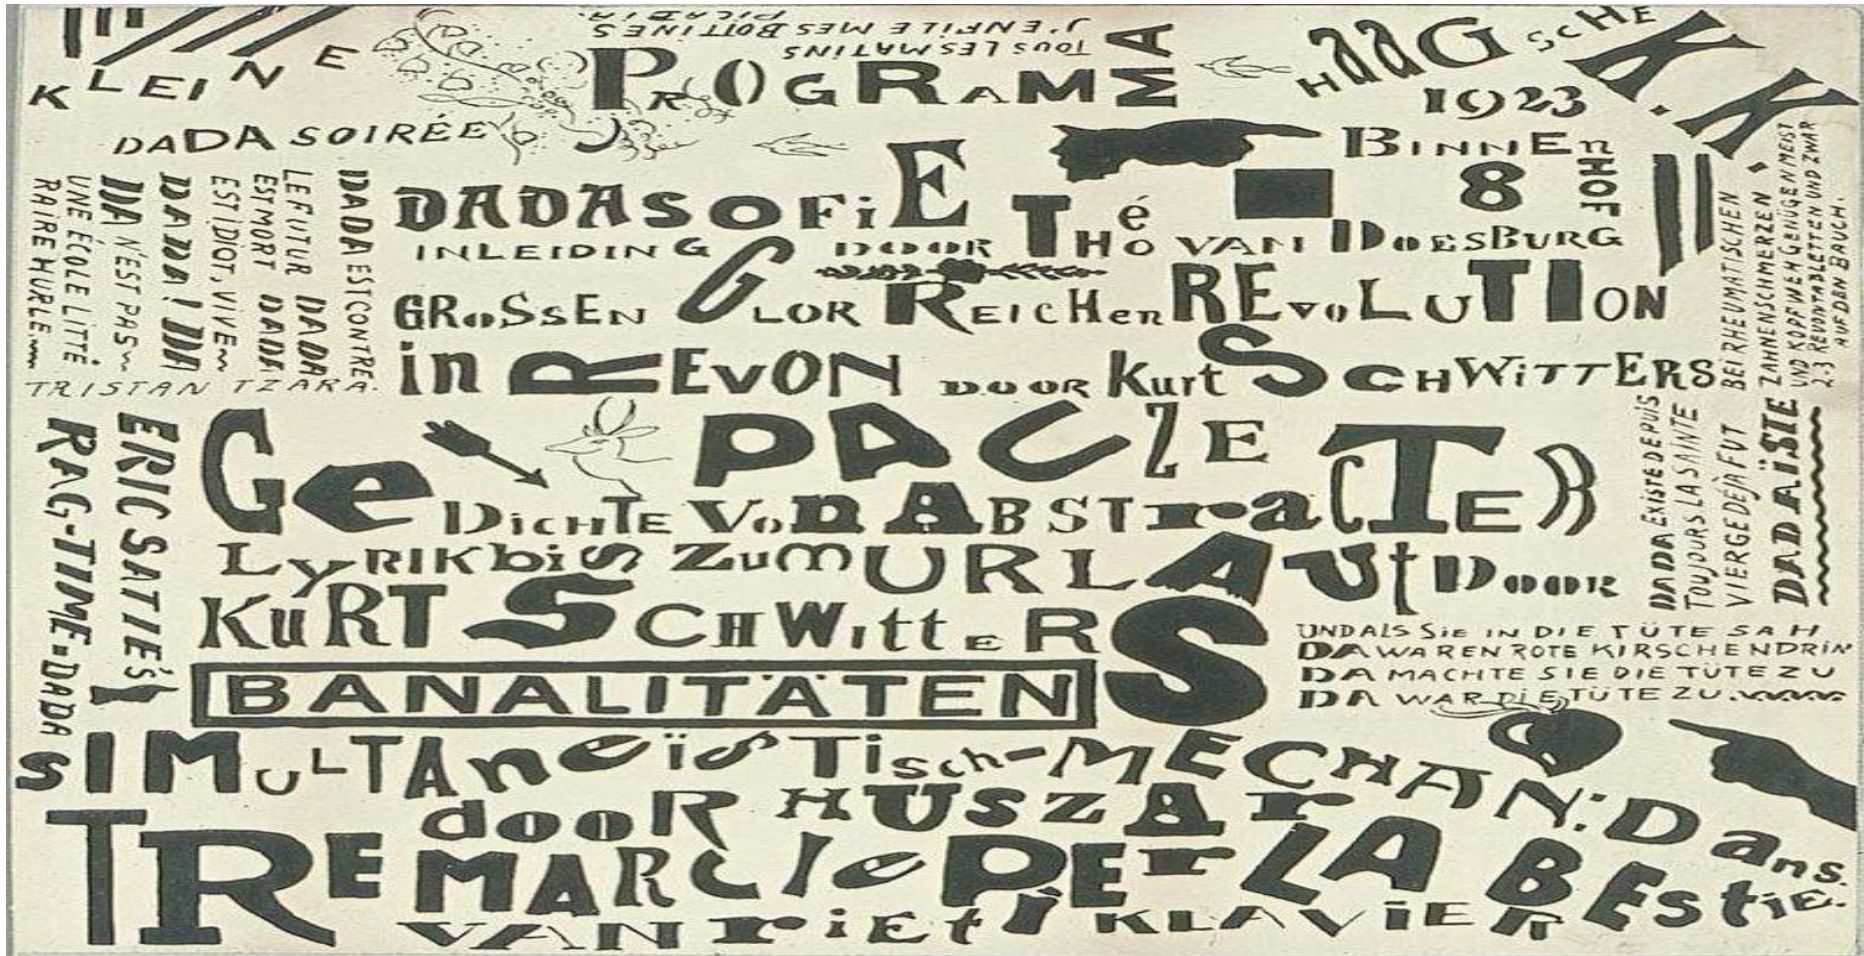 KLEINE
DADA SOIRÉE
TOUS LES MATINS
J'ENFILE MES BOTTINES
PICABIA.
PROGRAMMA
HAAGSCHE K.K.
1923
BINNENHOF 8
DADASOFiE
INLEIDING DOOR Théo VAN DOESBURG
GROSSEN GLORREICHEN REVOLUTION
in REVON DOOR Kurt SCHWITTERS
DADA EST CONTRE
LE FUTUR DADA
EST MORT DADA
EST IDIOT, VIVE
DADA! DA
DA N'EST PAS
UNE ÉCOLE LITTÉ
RAIRE HURLE
TRISTAN TZARA.
BEI RHEUMATISCHEN
ZAHNENSCHMERZEN
UND KOPFWEH GENÜGEN MEIST
2-3 REVONTABLETTEN UND ZWAR
AUF DEN BAUCH.
ERIC SATIE'S
RAG-TIME=DADA
PAUZE
GeDICHTE VON ABSTracTER
LyRIK biS ZumURLAUt DOOR
KuRT SCHWittERS
DADA EXISTE DEPUIS
TOUJOURS LA SAINTE
VIERGE DÉJÀ FUT
DADAÏSTE
BANALITÄTEN
UND ALS SiE IN DIE TÜTE SAH
DA WAREN ROTE KIRSCHEN DRIN
DA MACHTE SIE DIE TÜTE ZU
DA WAR DIE TÜTE ZU.
SIMULTAneïSTisch-MECHAN: Dans.
dooR HUSZAr
TRE MARCIe PEr LA BEstiE.
VAN riEti KLAVIER